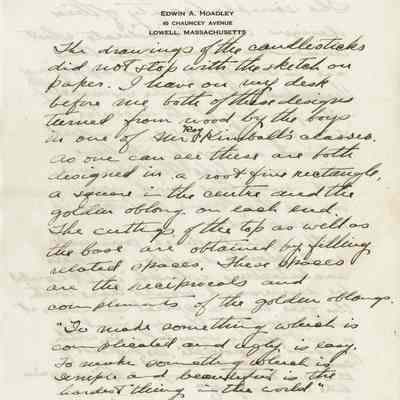 EDWIN A. HOADLEY
16 CHAUNCEY AVENUE
LOWELL, MASSACHUSETTS
The drawings of the candlesticks
did not stop with the sketch on
paper. I have on my desk
before me, both of these designs
turned from wood by the boys
in one of Mr Roy Kimball's classes.
As one can see these are both
designed in a root five rectangle,
a square in the centre and the
golden oblong on each end.
The cuttings of the top as well as
the base are obtained by filling
related spaces. These spaces
are the reciprocals and
compliments of the golden oblongs.
"To made something which is
complicated and ugly is easy.
To make something which is
simple and beautiful is the
hardest thing in the world"